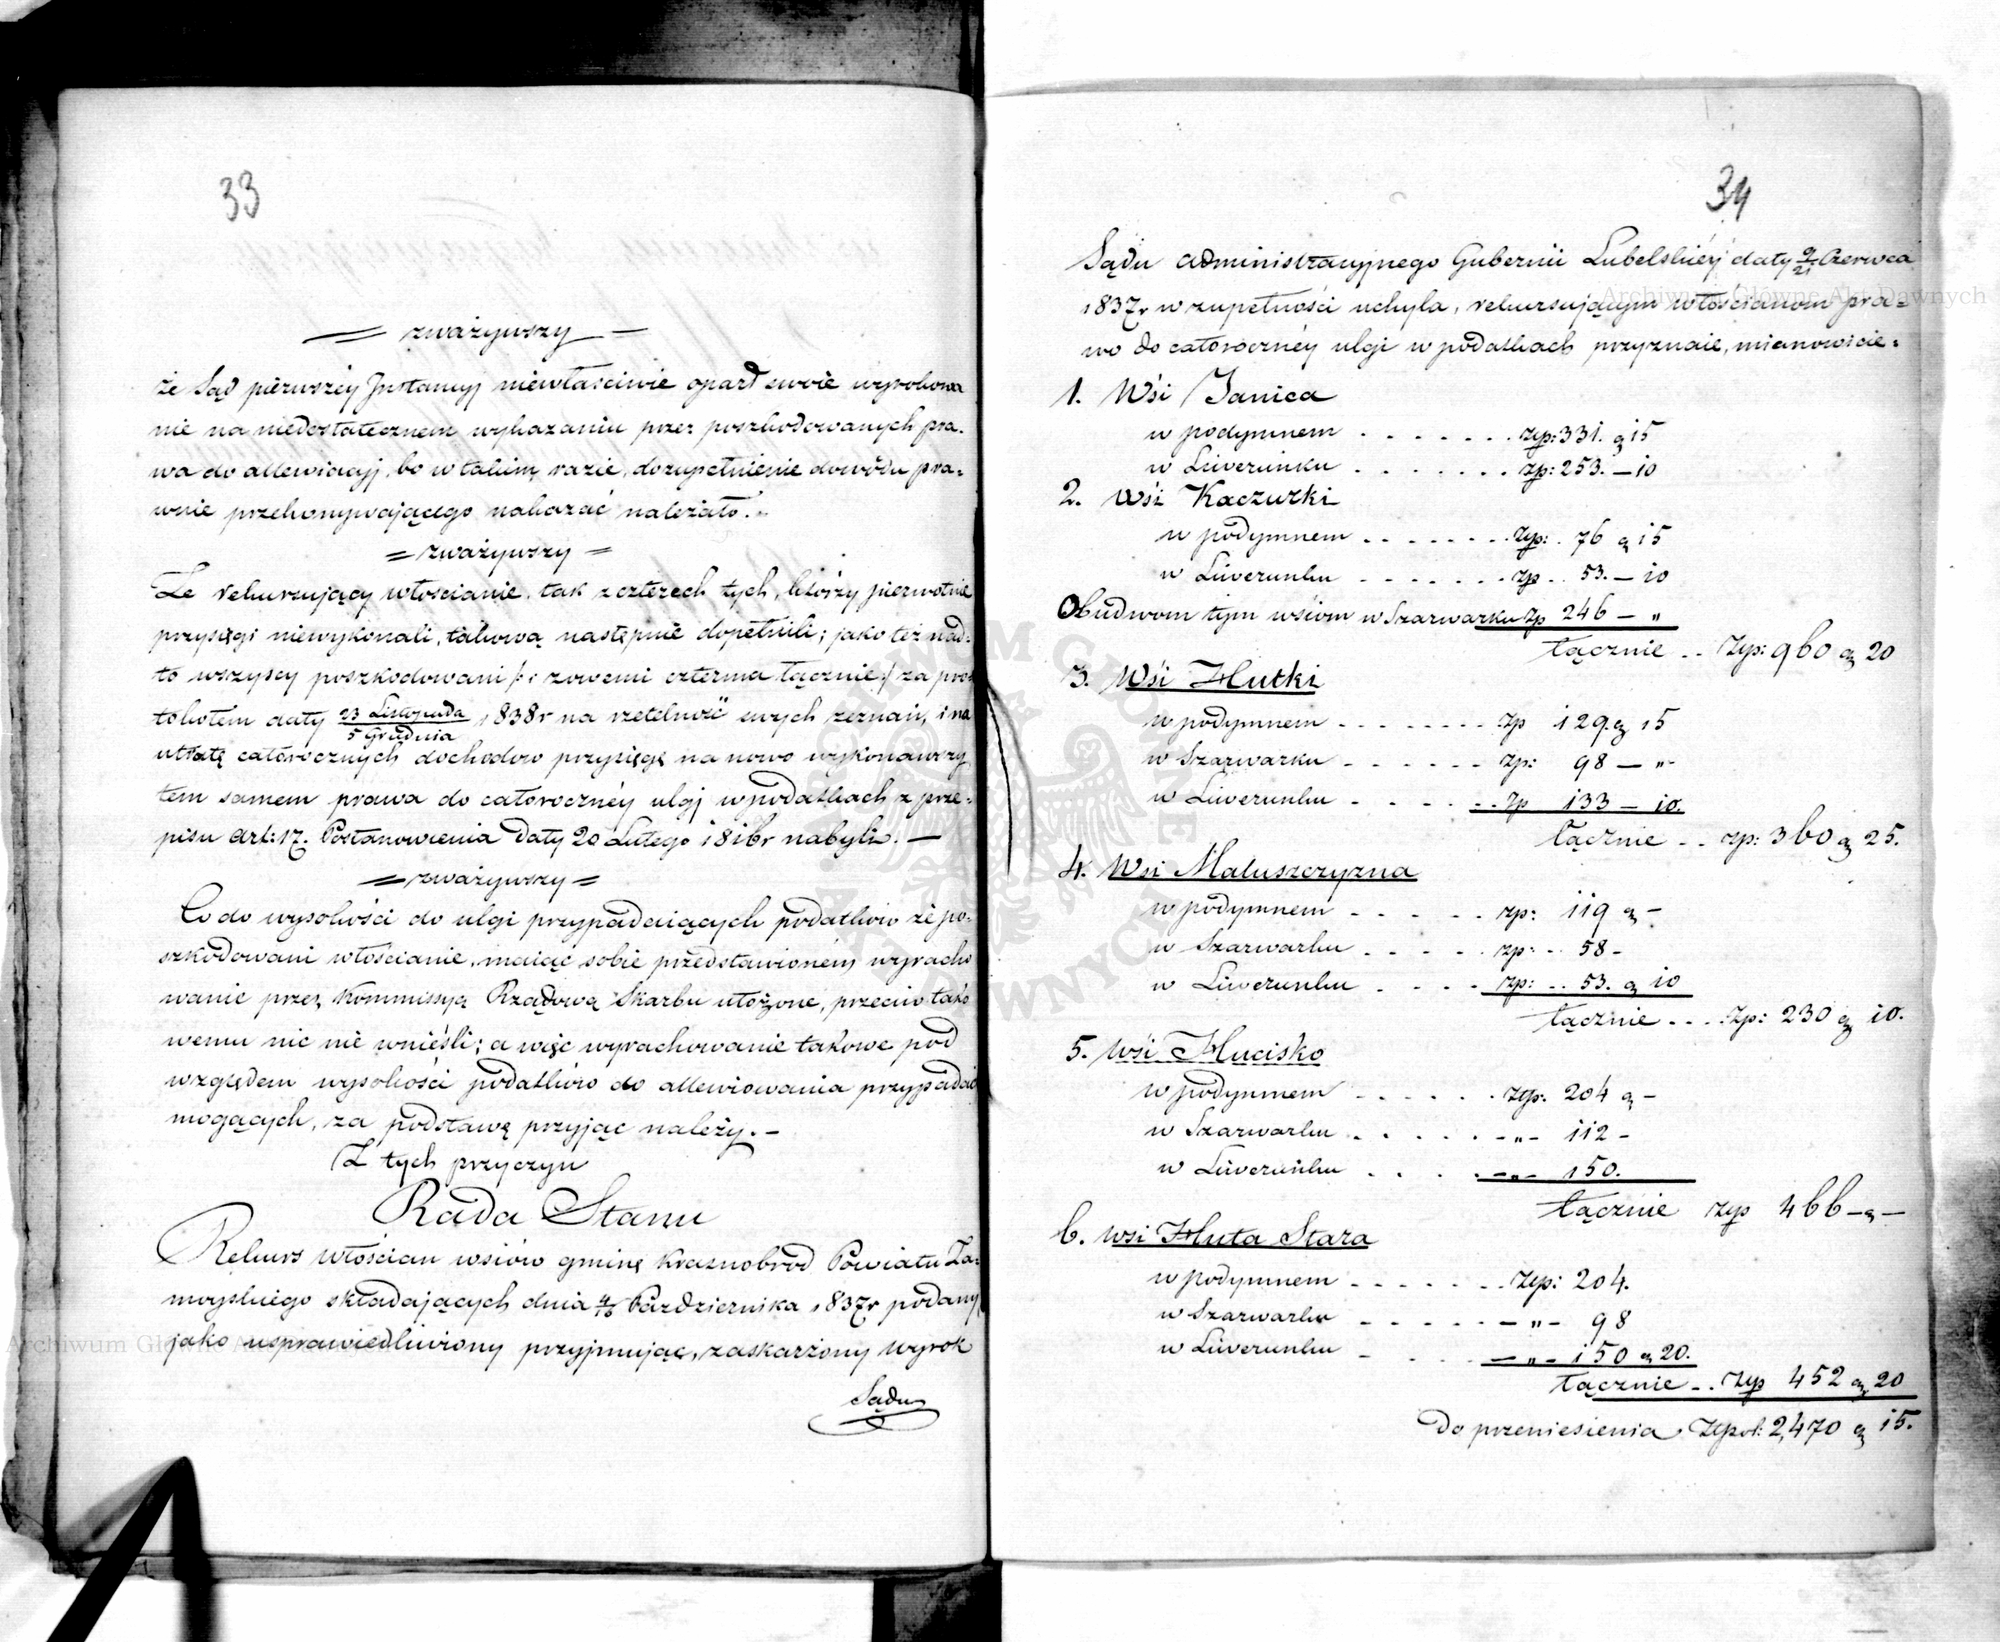 33
= zważywszy =
że Sąd pierwszéy Instancyj niewłaściwie oparł swoie wyrokowa
nie na niedostatecznem wykazaniu przez poszkodowanych pra-
wa do allewiacyj, bo w takim razie, dozupełnienie dowódu pra-
wnie przekonywającego nakazać należało. -
= zważywszy =
Że rekursujący włościanie, tak z czterech tych, którzy pierwotnie
przysięgi niewykonali, takową następnie dopełnili; jako też nad-
to wszyscy poszkodowani /: z owemi czterma łącznie :/ za pro-
tokołem daty 23 Listopada / 5 Grudnia 1838r na rzetelność swych zeznań, i na
utratę całorocznych dochodow przysięgę na nowo wykonawszy
tem samem prawa do całorocznéy ulgj w podatkach z prze-
pisu art: 17. Postanowienia daty 20 Lutego 1816r nabyli. —
= zważywszy =
Co do wysokości do ulgi przypadaiących podatków że po-
szkodowani włościanie, maiąc sobie przedstawionem wyracho
wanie przez Kommissyą Rządową Skarbu ułożone, przeciw tako
wemu nic nie wnieśli; a więc wyrachowanie takowe pod
względem wysokości podatków do allewiowania przypadać
mogących, za podstawę przyjąc należy. -
Z tych przyczyn
Rada Stanu
Rekurs włościan wsiów gminę Krasnobrod Powiatu Za-
moyskiego składających dnia 4/16 Października 1837r podany
jako usprawiedliwiony przyjmując, zaskarżony wyrok
Sądu
34
Sądu administracyjnego Gubernii Lubelskiéy daty 9/21 Czerwca
1837r w zupełności uchyla, rekursującym włościanom pra-
wo do całorocznéy ulgi w podatkach przyznaie, mianowicie:
1. Wsi Janica
w podymnem . . . . . . . zp: 331. g 15
w Liwerunku . . . . . . . zp: 253. — 10
2. Wsi Kaczurki
w podymnem . . . . . . . zp: . 76 g 15
w Liwerunku . . . . . . . zp . . 53. — 10
Obudwom tym wsiom w Szarwarku zp 246 — "
Łącznie . . Zp: 960 g 20
3. Wsi Hutki
w podymnem . . . . . . . . zp 129. g 15
w Szarwarku . . . . . . . zp: 98 — "-
w Liwerunku . . . . . . . zp 133 — 10.
Łącznie . . zp: 360 g 25.
4. Wsi Maluszczyzna
w podymnem . . . . . zp: 119 g -
w Szarwarku . . . . . zp: . . 58 -
w Liwerunku . . . . zp: . . 53. g 10
Łącznie . . . . Zp: 230 g 10.
5. Wsi Hucisko
w podymnem . . . . . . zp. 204 g -
w Szarwarku . . . . . -"- 112 -
w Liwerunku . . . . -"- 150.
Łącznie zp 466 - g -
6. Wsi Huta Stara
w podymnem . . . . . . . Zp: 204.
w Szarwarku . . . . . . -"- 98
w Liwerunku . . . . -"- 150 g 20.
Łącznie . . Zp 452 g 20
Do przeniesienia Złpol: 2,470 g 15.
Archiwum Główne Akt Dawnych